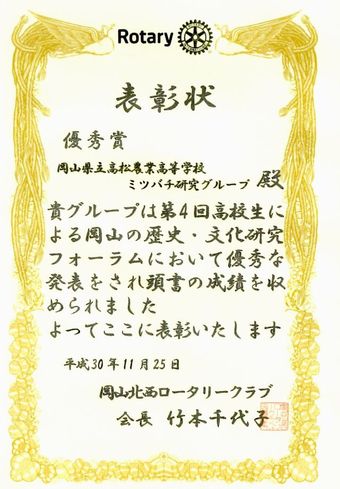 Rotary
表彰状
優秀賞
岡山県立高松農業高等学校
ミツバチ研究グループ 殿
貴グループは第4回高校生に
よる岡山の歴史・文化研究
フォーラムにおいて優秀な
発表をされ頭書の成績を収
められました
よってここに表彰いたします
平成30年11月25日
岡山北西ロータリークラブ
会長 竹本千代子